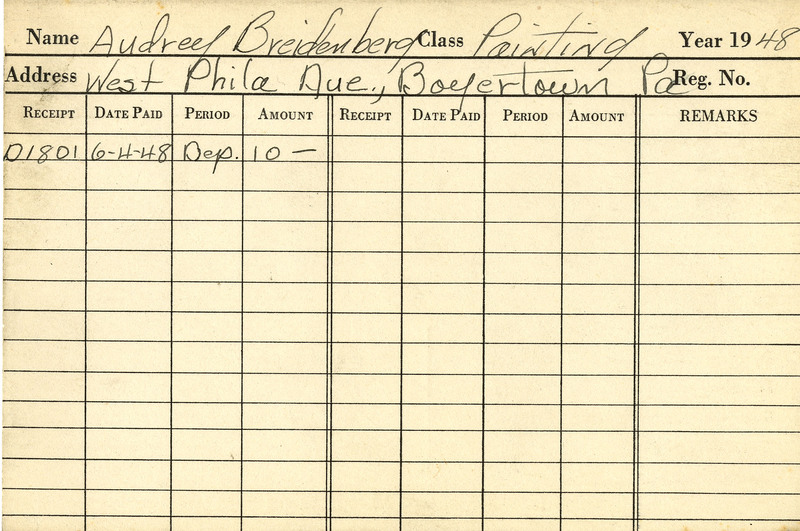 Name Audrey Breidenberg Class Painting Year 1948
Address West Phila Ave., Boyertown Pa Reg. No.
RECEIPT DATE PAID PERIOD AMOUNT RECEIPT DATE PAID PERIOD AMOUNT REMARKS
D1801 6-4-48 Dep. 10 —